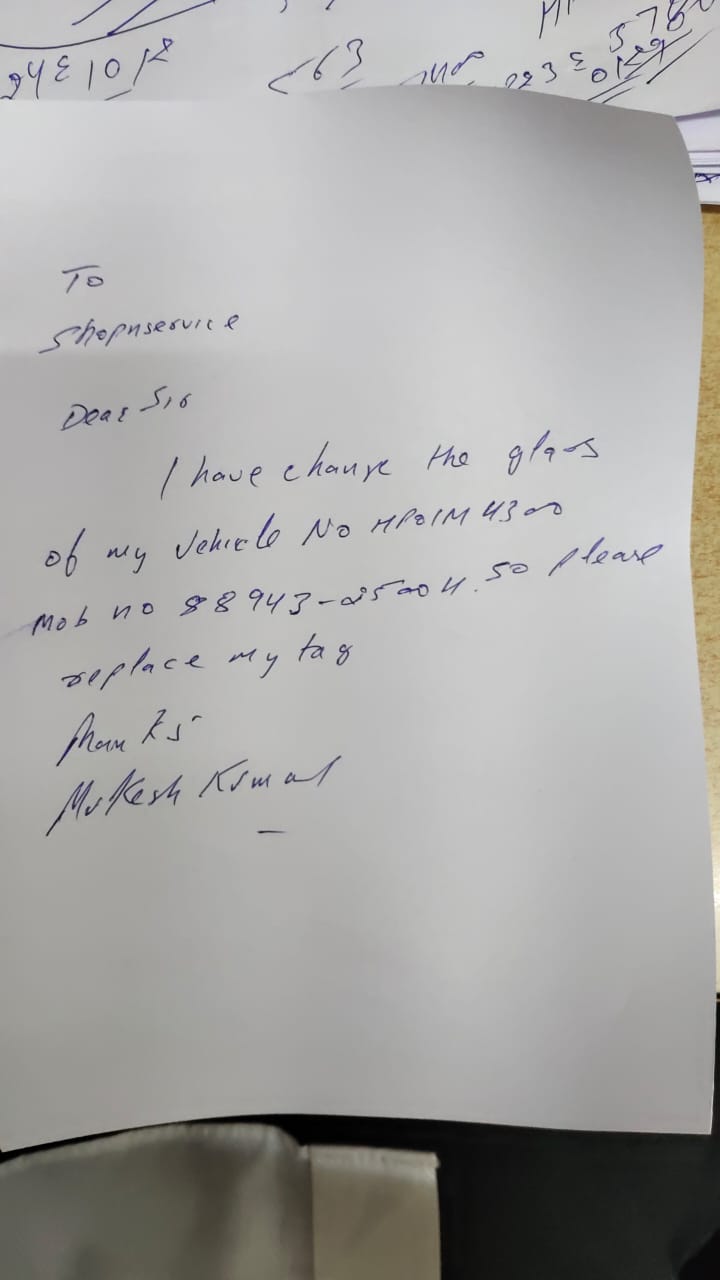 24 E 10 12
<63
To
Shopnservice
Dear Sir
I have change the glass
of my Vehicle No HP01M 4300
Mob no 88943-25004. So please
replace my tag
Thanks
Mukesh Kumar